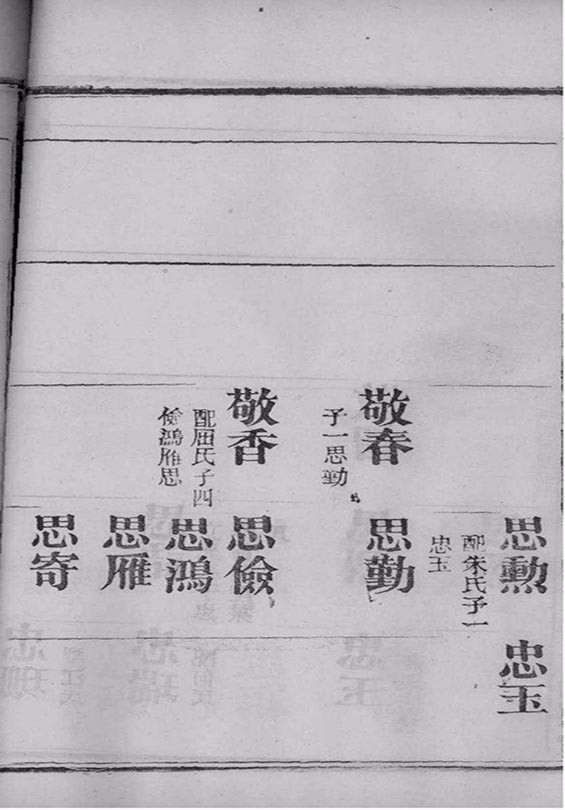 思勳
配朱氏子一
忠玉
忠玉
敬春
子一思勤
思勤
敬香
配屈氏子四
儉鴻雁思
思儉
思鴻
思雁
思寄